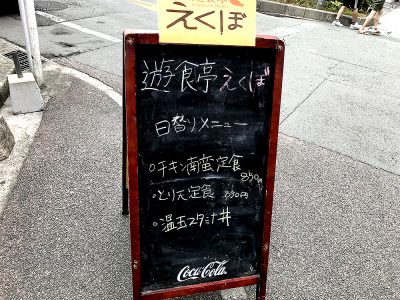 えくぼ
遊食亭えくぼ
日替りメニュー
○チキン南蛮定食
850円
○とり天定食 850円
○温玉スタミナ丼
Coca-Cola